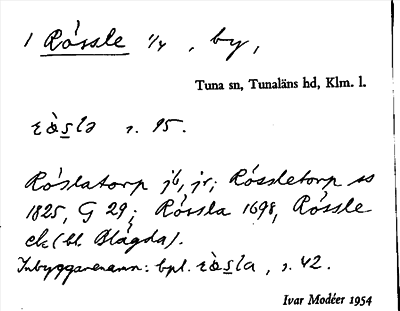 1 Rössle 1/4, by,
Tuna sn, Tunaläns hd, Klm. l.
s. 95.
Röslatorp jb, jr; Rössletorp ss
1825, G 29; Rössla 1698, Rössle
ek (bl. Blägda).
Inbyggarenamn: bpl. s. 42.
Ivar Modéer 1954